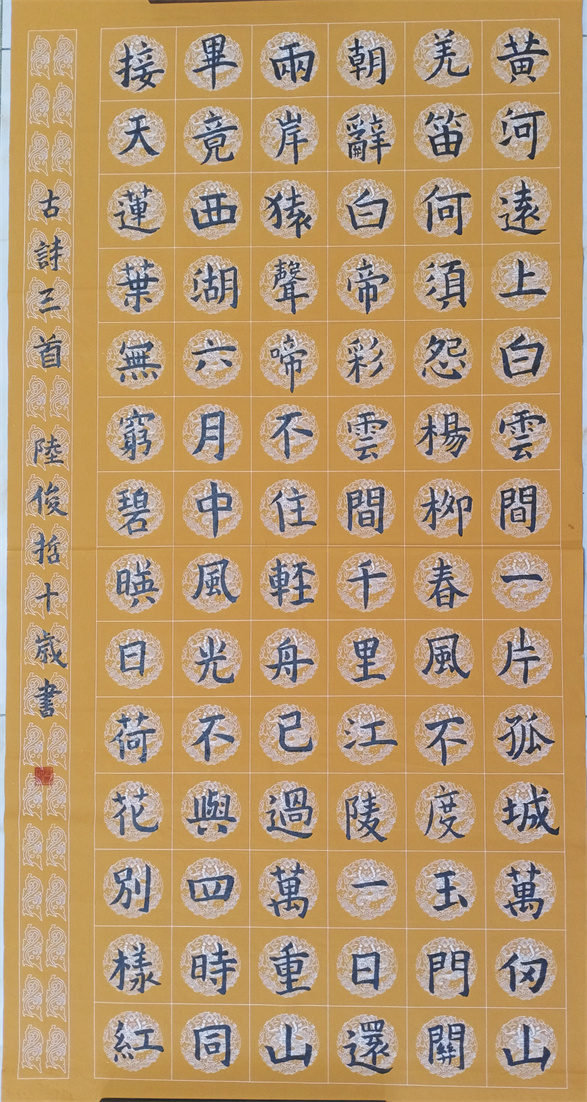 黃河遠上白雲間一片孤城萬仞山
羌笛何須怨楊柳春風不度玉門關
朝辭白帝彩雲間千里江陵一日還
兩岸猿聲啼不住輕舟已過萬重山
畢竟西湖六月中風光不與四時同
接天蓮葉無窮碧暎日荷花別樣紅
古詩三首 陸俊哲十歲書